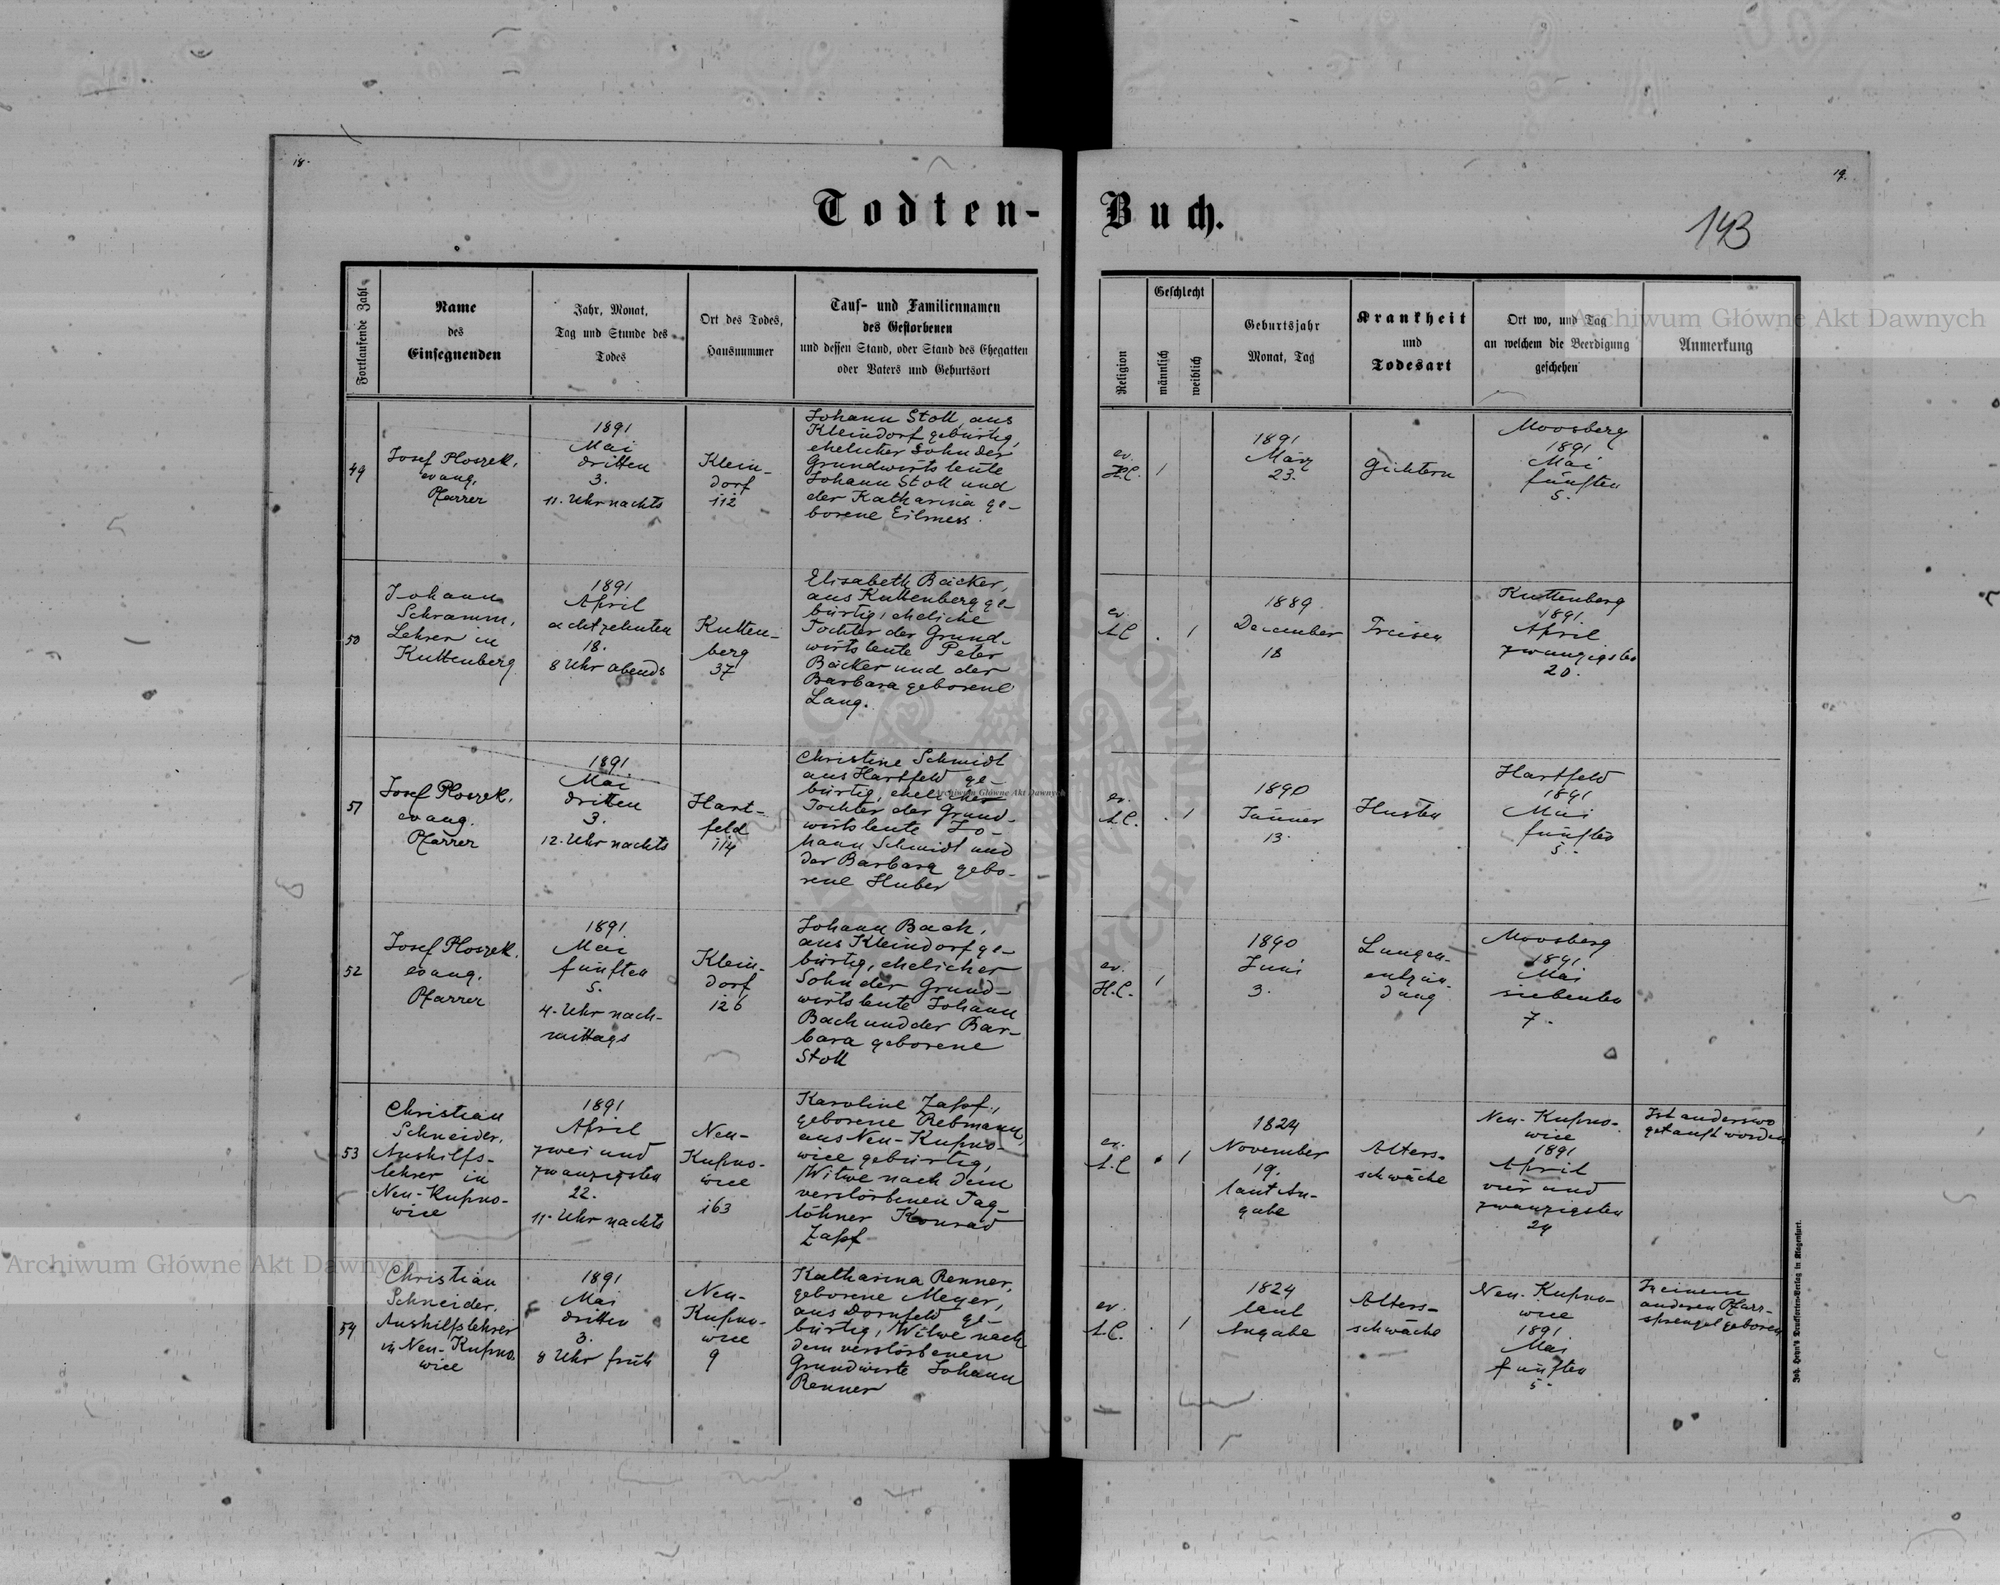 18.
19.
Todten-Buch.
143
Fortlaufende Zahl
Name
des
Einsegnenden
Jahr, Monat,
Tag und Stunde des
Todes
Ort des Todes,
Hausnummer
Tauf- und Familiennamen
des Gestorbenen
und dessen Stand, oder Stand des Ehegatten
oder Vaters und Geburtsort
Religion
Geschlecht
männlich
weiblich
Geburtsjahr
Monat, Tag
Krankheit
und
Todesart
Ort wo, und Tag
an welchem die Beerdigung
geschehen
Anmerkung
49
Josef Ploszek,
evang.
Pfarrer
1891
Mai
dritten
3.
11. Uhr nachts
Klein-
dorf
112
Johann Stoll, aus
Kleindorf gebürtig,
ehelicher Sohn der
Grundwirts leute
Johann Stoll und
der Katharina ge-
borene Eilmess.
ev.
H.C.
1
1891
März
23.
Gichtern
Moosberg
1891
Mai
fünften
5.
50
Johann
Schramm,
Lehrer in
Kuttenberg
1891
April
achtzehnten
18.
8 Uhr abends
Kutten-
berg
37
Elisabeth Bäcker,
aus Kuttenberg ge-
bürtig, eheliche
Tochter der Grund-
wirtsleute Peter
Bäcker und der
Barbara geborene
Lang.
ev.
A.C.
. 1
1889
December
18
Freisen
Kuttenberg
1891.
April
zwanzigsten
20.
51
Josef Ploszek,
evang.
Pfarrer
1891
Mai
dritten
3.
12. Uhr nachts
Hart-
feld
114
Christine Schmidt
aus Hartfeld ge-
bürtig, eheliche
Tochter der Grund-
wirtsleute Jo-
hann Schmidt und
der Barbara gebo-
rene Huber
ev.
A.C.
. 1
1890
Jänner
13.
Husten
Hartfeld
1891
Mai
fünften
5.
52
Josef Ploszek,
evang.
Pfarrer
1891
Mai
fünften
5.
4. Uhr nach-
mittags
Klein-
dorf
126
Johann Bach,
aus Kleindorf ge-
bürtig, ehelicher
Sohn der Grund-
wirtsleute Johann
Bach und der Bar-
bara geborene
Stoll
ev.
H.C.
1
1890
Juni
3.
Lungen-
entzün-
dung
Moosberg
1891
Mai
siebenten
7.
53
Christian
Schneider,
Aushilfs-
lehrer in
Neu-Kupno-
wice
1891
April
zwei und
zwanzigsten
22.
11. Uhr nachts
Neu-
Kupno-
wice
163
Karoline Zapf,
geborene Rebmann,
aus Neu-Kupno-
wice gebürtig,
Witwe nach dem
verstorbenen Tag-
löhner Konrad
Zapf
ev.
A.C
. 1
1824
November
19.
laut An-
gabe
Alters-
schwäche
Neu-Kupno-
wice
1891
April
vier und
zwanzigsten
24
Ist anderswo
getauft worden
54
Christian
Schneider,
Aushilfslehrer
in Neu-Kupno-
wice
1891
Mai
dritten
3.
8 Uhr früh
Neu-
Kupno-
wice
9
Katharina Renner,
geborene Meyer,
aus Dornfeld ge-
bürtig, Witwe nach
dem verstorbenen
Grundwirte Johann
Renner
ev.
A.C.
. 1
1824
laut
Angabe
Alters-
schwäche
Neu-Kupno-
wice
1891.
Mai
fünften
5.
In einem
anderen Pfarr-
sprengel geboren
Joh. Heyn's Drucksorten-Verlag in Klagenfurt.
Archiwum Główne Akt Dawnych
Archiwum Główne Akt Dawnych
Archiwum Główne Akt Dawnych